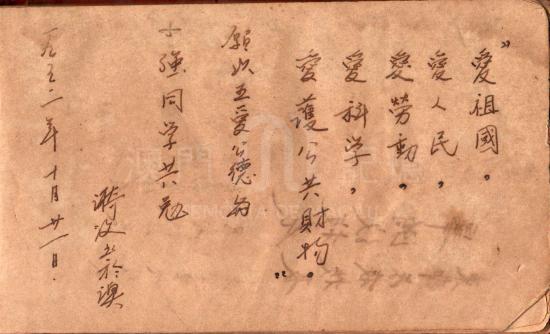 "愛祖國。
愛人民,
愛勞動,
愛科學,
愛護公共財物。"
願以五愛公德為
士強同学共勉
漪波書於澳
一九五二年十月廿一日.